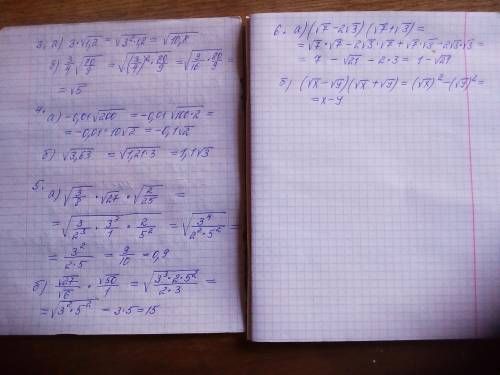 3. а) 3·√1,2 = √3²·1,2 = √10,8
б) 3/4 √80/9 = √(3/4)²·80/9 = √9/16 · 80/9 =
= √5
4. а) -0,01√200 = -0,01√100·2 =
= -0,01·10√2 = -0,1√2
б) √3,63 = √1,21·3 = 1,1√3
5. а) √3/8 · √27 · √2/25 =
= √3/2³ · 3³/1 · 2/5² = √3⁴/2²·5² =
= 3²/2·5 = 9/10 = 0,9
б) √27/√6 · √50/1 = √3³·2·5²/2·3 =
= √3²·5² = 3·5 = 15
6. а) (√7 - 2√3)(√7 + √3) =
= √7·√7 - 2√3·√7 + √7·√3 - 2√3·√3 =
= 7 - √21 - 2·3 = 1 - √21
б) (√x - √y)(√x + √y) = (√x)² - (√y)² =
= x - y